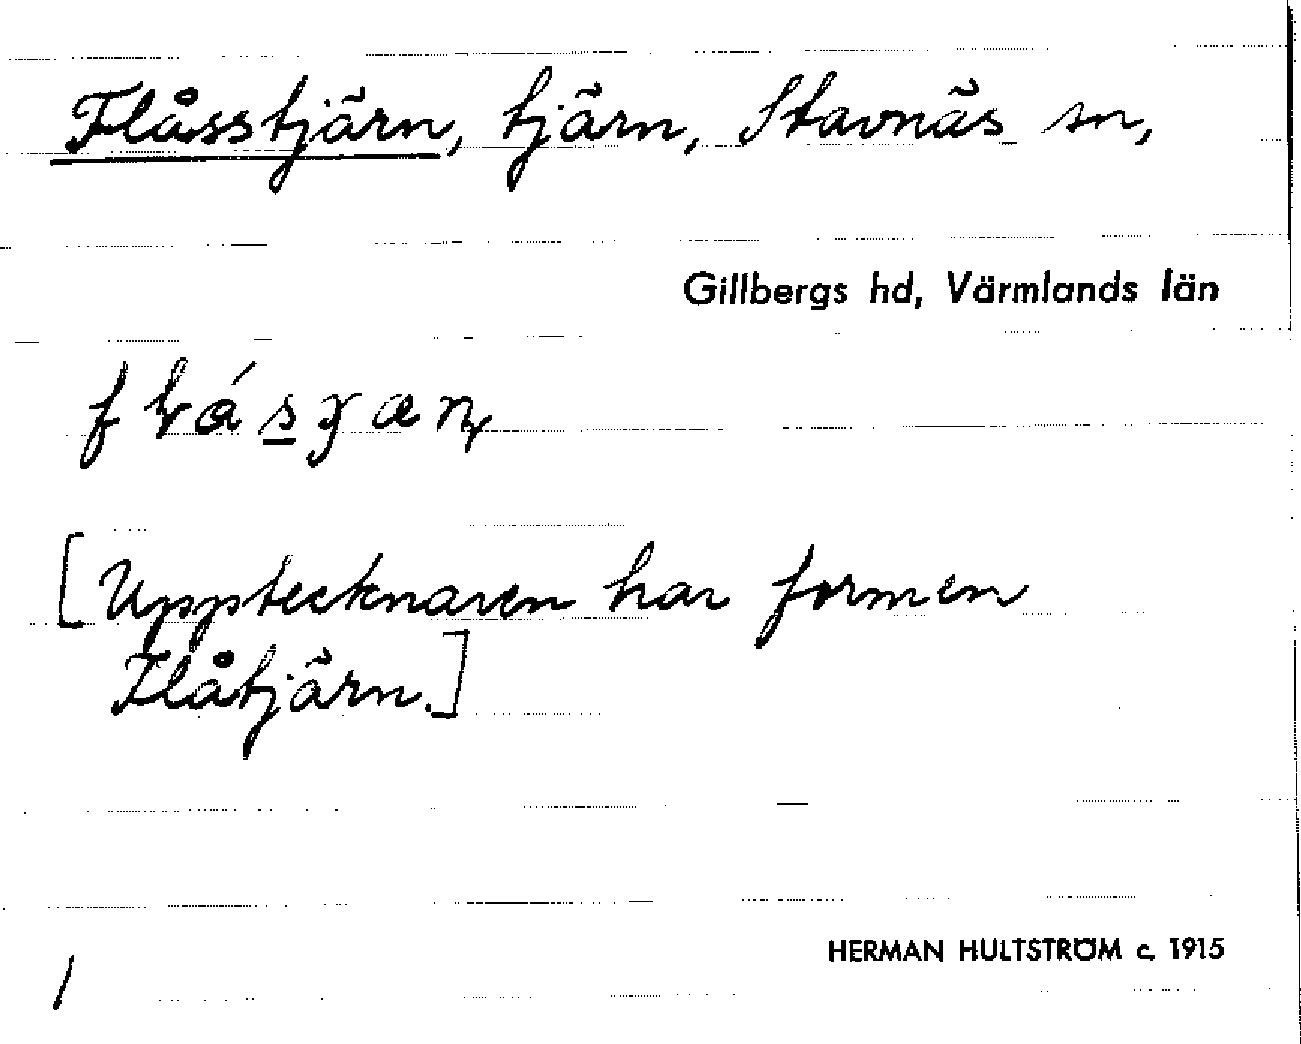 Flåsstjärn, tjärn, Stavnäs sn,
Gillbergs hd, Värmlands län
[Upptecknaren har formen
Flåtjärn.]
HERMAN HULTSTRÖM c. 1915
/